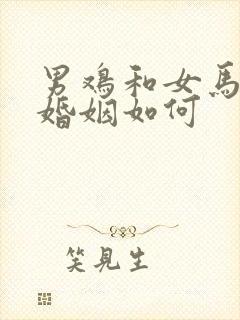 男鸡和女馬
婚姻如何
笑見生